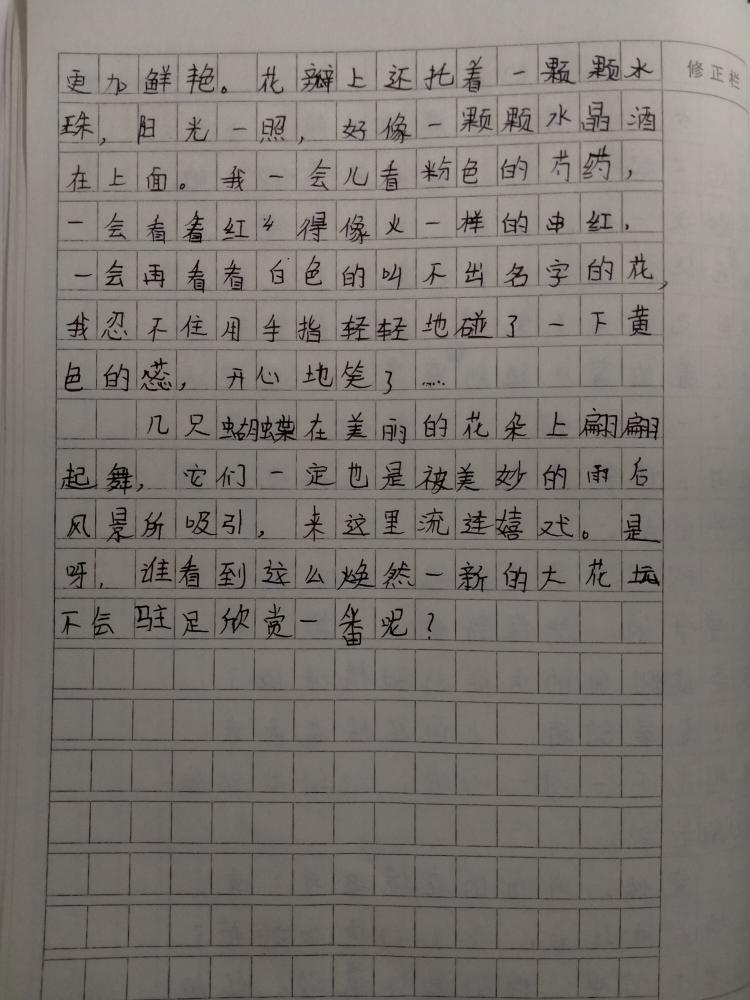 修正栏
更加鲜艳。花瓣上还托着一颗颗水
珠，阳光一照，好像一颗颗水晶洒
在上面。我一会儿看粉色的芍药，
一会看看红得像火一样的串红，
一会再看看白色的叫不出名字的花，
我忍不住用手指轻轻地碰了一下黄
色的蕊，开心地笑了……
几只蝴蝶在美丽的花朵上翩翩
起舞，它们一定也是被美妙的雨后
风景所吸引，来这里流连嬉戏。是
呀，谁看到这么焕然一新的大花坛
不会驻足欣赏一番呢？